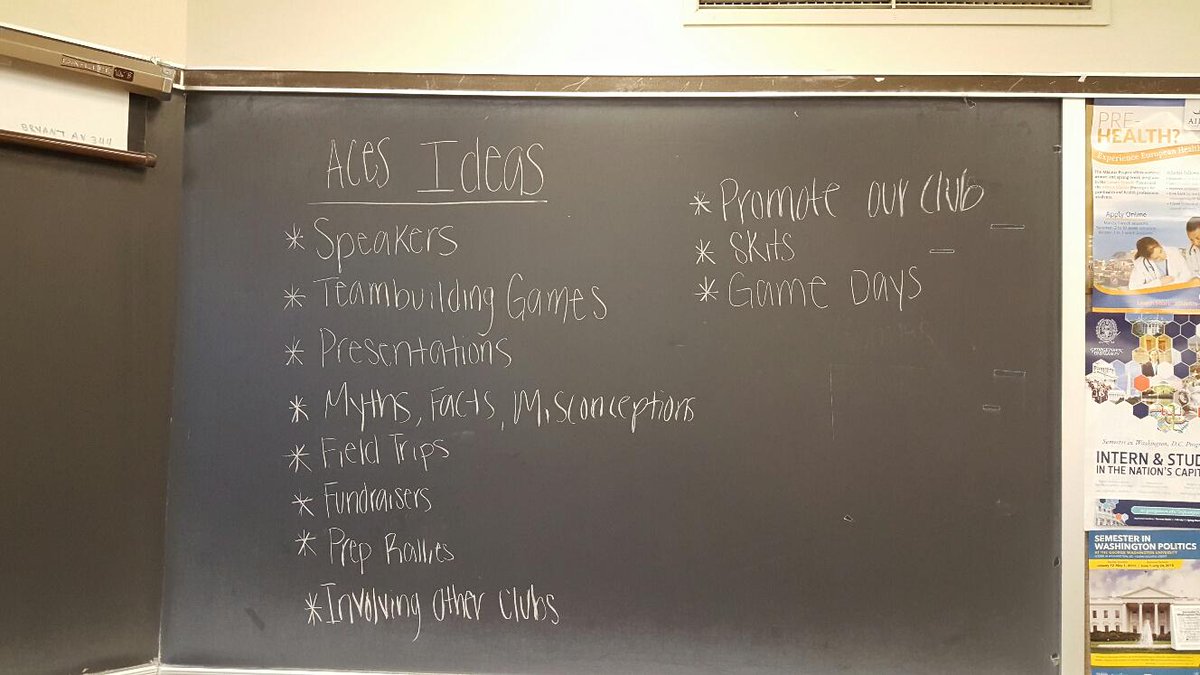 BRYANT AV 344
ACES Ideas
* Speakers
* Teambuilding Games
* Presentations
* Myths, Facts, Misconceptions
* Field Trips
* Fundraisers
* Prep Rallies
* Involving Other Clubs
* Promote our club
* Skits
* Game Days
PRE-
HEALTH?
Experience European Health
Apply Online
INTERN & STUD
IN THE NATION'S CAPIT
SEMESTER IN
WASHINGTON POLITICS
AT THE GEORGE WASHINGTON UNIVERSITY